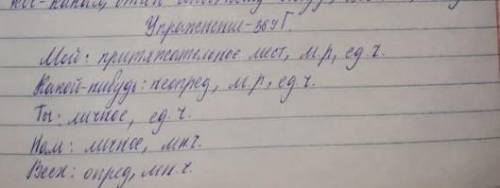 Упражнение-369 Г.
Мой: притяжательное мест, м.р, ед.ч.
Какой-нибудь: неопред, м.р, ед.ч.
Ты: личное, ед.ч.
Нам: личное, мн.ч.
Всех: опред, мн.ч.